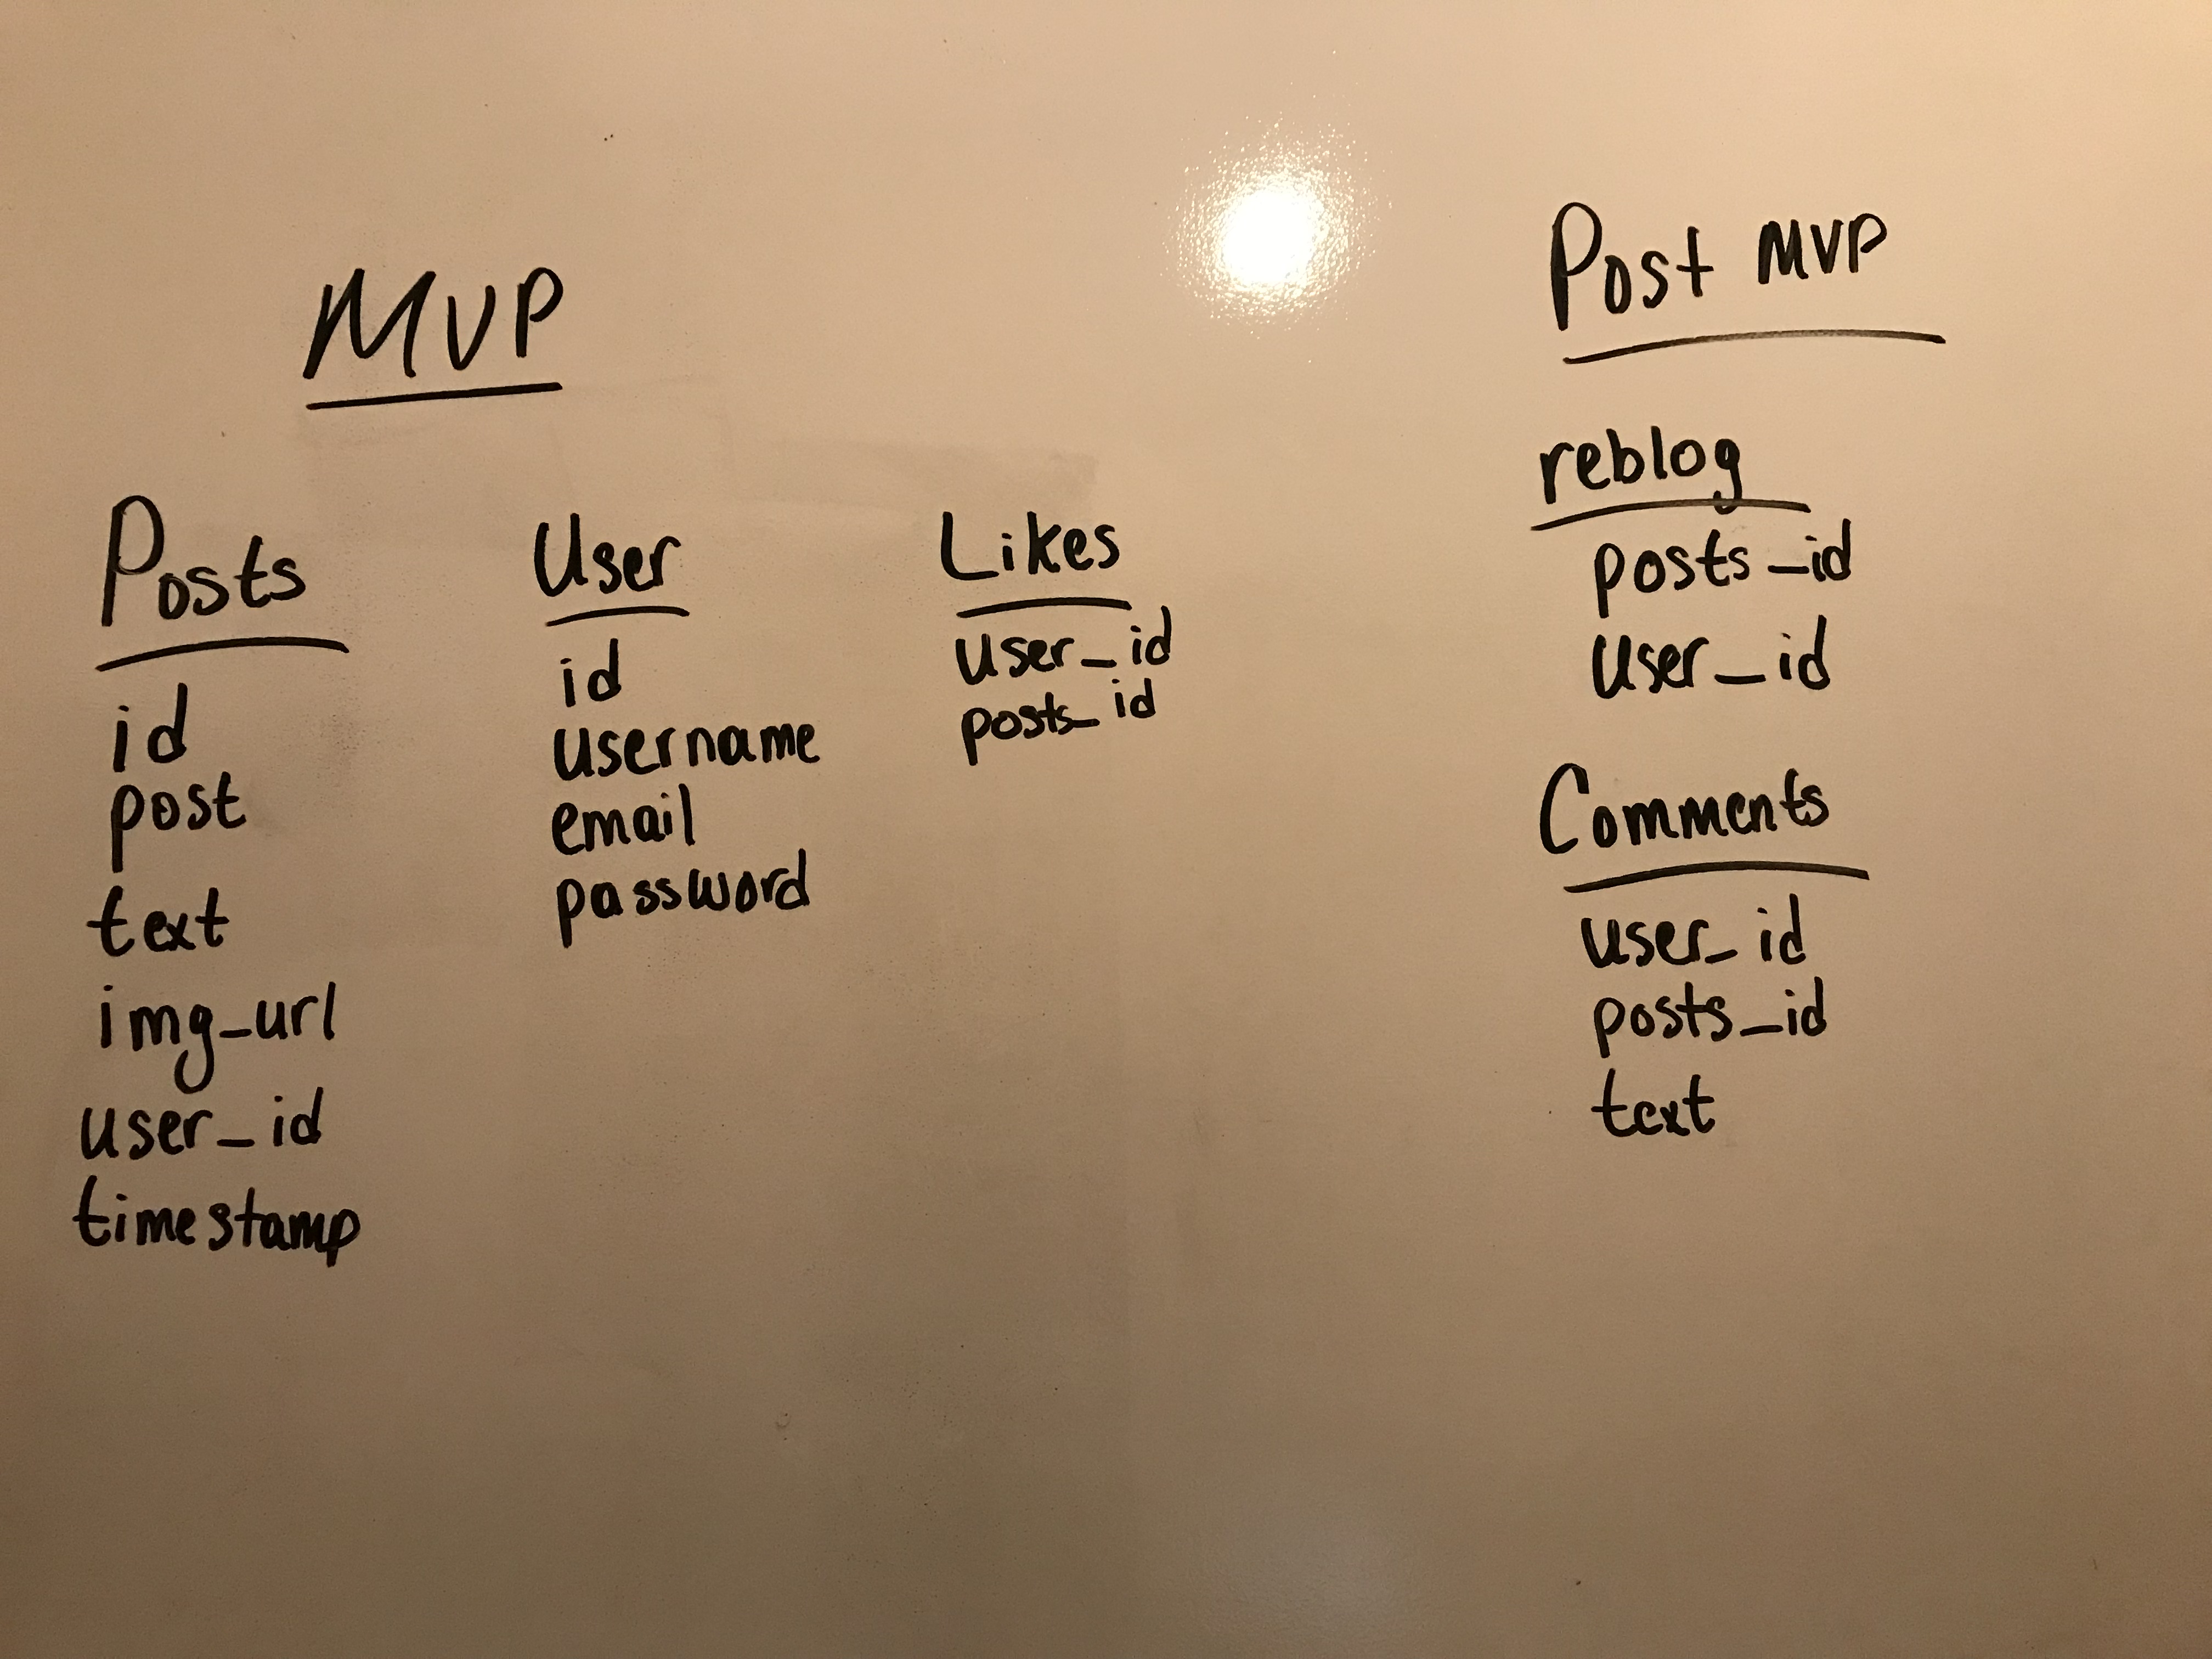 MVP
Posts
id
post
text
img_url
user_id
timestamp
User
id
username
email
password
Likes
user_id
posts_id
Post MVP
reblog
posts_id
user_id
Comments
user_id
posts_id
text